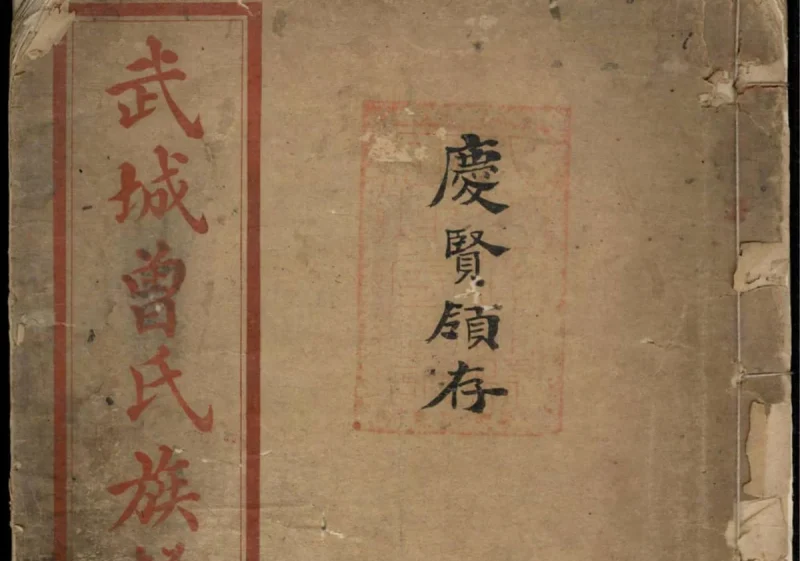 慶賢領存
武城曾氏族